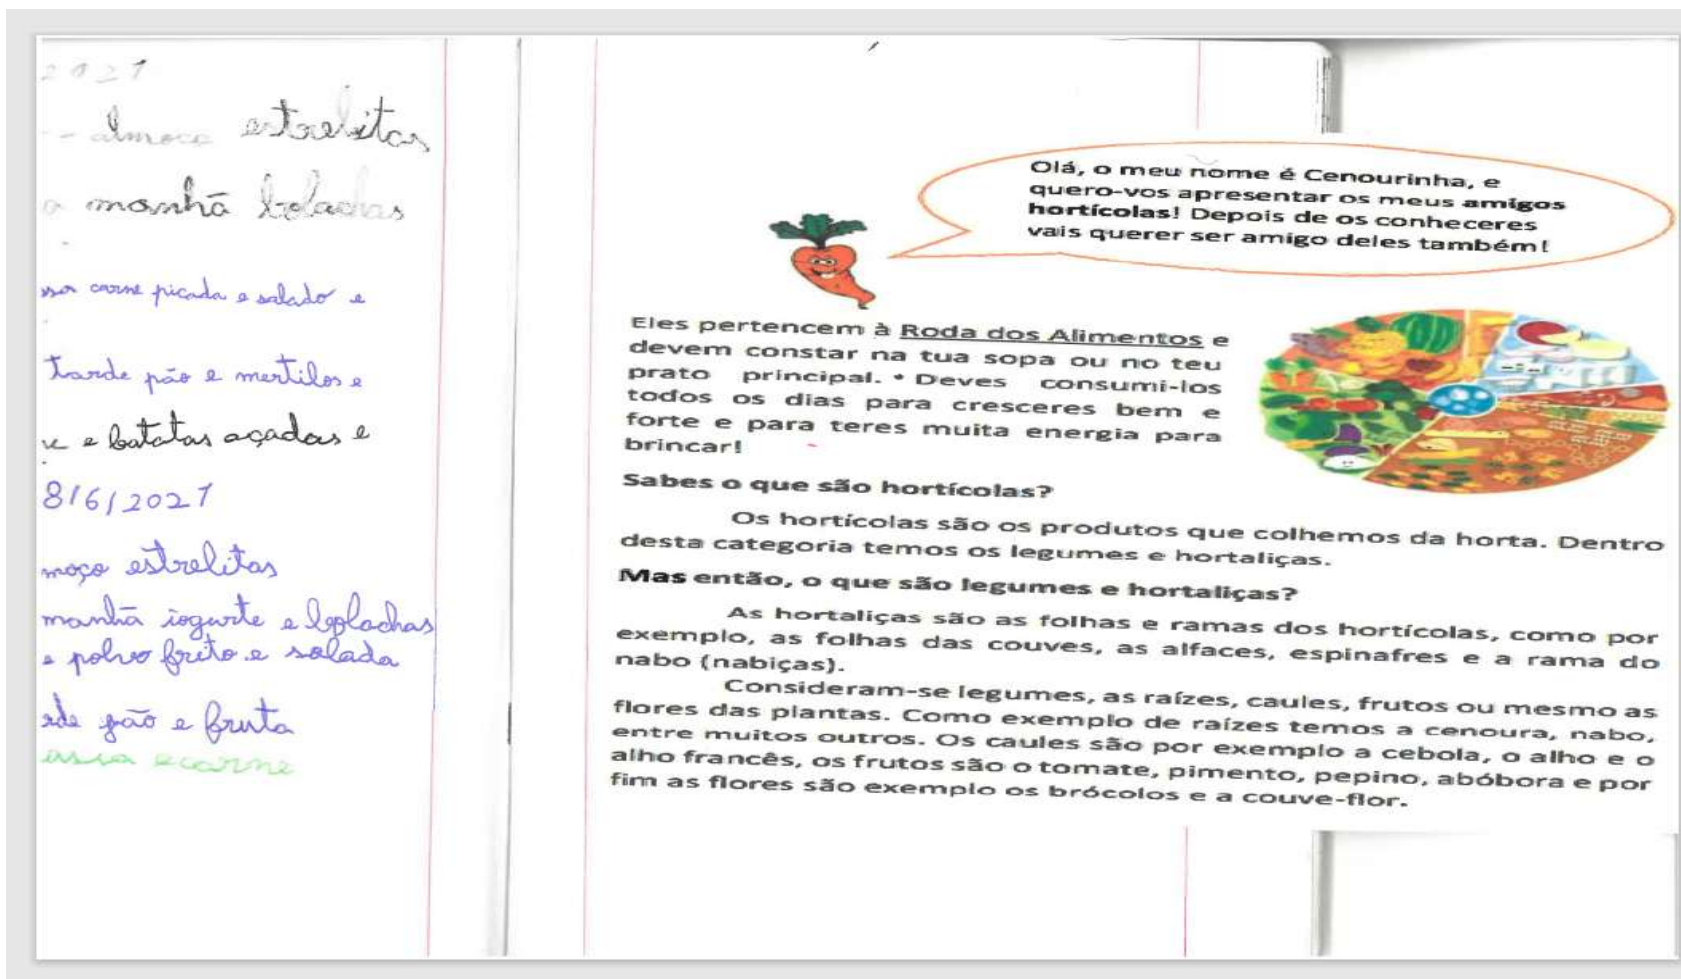 2021
almoço estrelitas
a manhã bolachas
carne picada e salado e
tarde pão e mertilos e
e batatas açadas e
8/6/2021
moço estrelitas
manhã iogurte e bolachas
e polvo frito e salada
rde pão e fruta
assa e carne
Olá, o meu nome é Cenourinha, e
quero-vos apresentar os meus amigos
hortícolas! Depois de os conheceres
vais querer ser amigo deles também!
Eles pertencem à Roda dos Alimentos e
devem constar na tua sopa ou no teu
prato principal. • Deves consumi-los
todos os dias para cresceres bem e
forte e para teres muita energia para
brincar!
Sabes o que são hortícolas?
Os hortícolas são os produtos que colhemos da horta. Dentro
desta categoria temos os legumes e hortaliças.
Mas então, o que são legumes e hortaliças?
As hortaliças são as folhas e ramas dos hortícolas, como por
exemplo, as folhas das couves, as alfaces, espinafres e a rama do
nabo (nabiças).
Consideram-se legumes, as raízes, caules, frutos ou mesmo as
flores das plantas. Como exemplo de raízes temos a cenoura, nabo,
entre muitos outros. Os caules são por exemplo a cebola, o alho e o
alho francês, os frutos são o tomate, pimento, pepino, abóbora e por
fim as flores são exemplo os brócolos e a couve-flor.